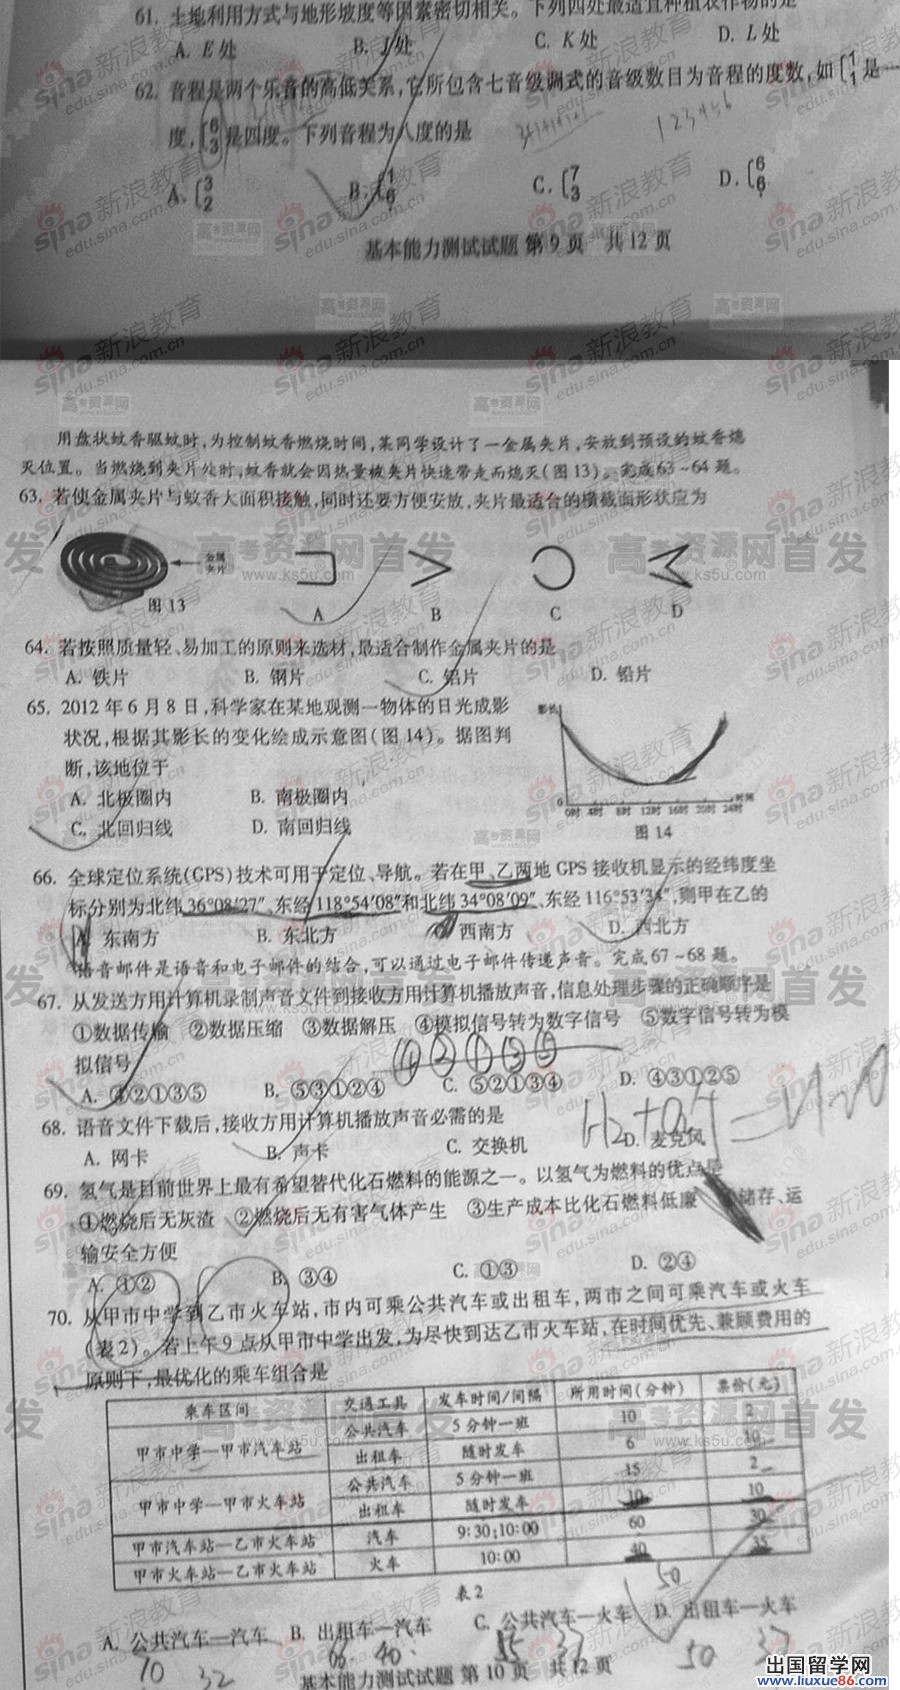 61. 土地利用方式与地形坡度等因素密切相关。下列四处最适宜种植农作物的是
A. E处 B. J处 C. K处 D. L处
62. 音程是两个乐音的高低关系,它所包含七音级调式的音级数目为音程的度数,如[1 1是一
度,[6 3是四度。下列音程为八度的是
A.[3 2 B.[1 6 C.[7 3 D.[6 6
基本能力测试试题 第9页 共12页
用盘状蚊香驱蚊时,为控制蚊香燃烧时间,某同学设计了一金属夹片,安放到预设的蚊香熄
灭位置。当燃烧到夹片处时,蚊香就会因热量被夹片快速带走而熄灭(图13)。完成63~64题。
63. 若使金属夹片与蚊香大面积接触,同时还要方便安放,夹片最适合的横截面形状应为
金属
夹片
图13 A B C D
64. 若按照质量轻、易加工的原则来选材,最适合制作金属夹片的是
A. 铁片 B. 钢片 C. 铝片 D. 铅片
65. 2012年6月8日,科学家在某地观测一物体的日光成影
状况,根据其影长的变化绘成示意图(图14)。据图判
断,该地位于
A. 北极圈内 B. 南极圈内
C. 北回归线 D. 南回归线
影长
0
0时 4时 8时 12时 16时 20时 24时 时间
图14
66. 全球定位系统(GPS)技术可用于定位、导航。若在甲、乙两地GPS接收机显示的经纬度坐
标分别为北纬36°08′27″、东经118°54′08″和北纬34°08′09″、东经116°53′34″,则甲在乙的
A. 东南方 B. 东北方 C. 西南方 D. 西北方
语音邮件是语音和电子邮件的结合,可以通过电子邮件传递声音。完成67~68题。
67. 从发送方用计算机录制声音文件到接收方用计算机播放声音,信息处理步骤的正确顺序是
①数据传输 ②数据压缩 ③数据解压 ④模拟信号转为数字信号 ⑤数字信号转为模
拟信号
④②①③⑤
A. ④②①③⑤ B. ⑤③①②④ C. ⑤②①③④ D. ④③①②⑤
68. 语音文件下载后,接收方用计算机播放声音必需的是
A. 网卡 B. 声卡 C. 交换机 D. 麦克风
69. 氢气是目前世界上最有希望替代化石燃料的能源之一。以氢气为燃料的优点是
①燃烧后无灰渣 ②燃烧后无有害气体产生 ③生产成本比化石燃料低廉 ④储存、运
输安全方便
A. ①② B. ③④ C. ①③ D. ②④
70. 从甲市中学到乙市火车站,市内可乘公共汽车或出租车,两市之间可乘汽车或火车
(表2)。若上午9点从甲市中学出发,为尽快到达乙市火车站,在时间优先、兼顾费用的
原则下,最优化的乘车组合是
乘车区间 交通工具 发车时间/间隔 所用时间(分钟) 票价(元)
甲市中学—甲市汽车站 公共汽车 5分钟一班 10 2
出租车 随时发车 6 10
甲市中学—甲市火车站 公共汽车 5分钟一班 15 2
出租车 随时发车 10 10
甲市汽车站—乙市火车站 汽车 9:30;10:00 60 30
甲市火车站—乙市火车站 火车 10:00 40 35
表2
50
A. 公共汽车—汽车 B. 出租车—汽车 C. 公共汽车—火车 D. 出租车—火车
70 32 66 40 55 37 50 37
基本能力测试试题 第10页 共12页
出国留学网
www.liuxue86.com